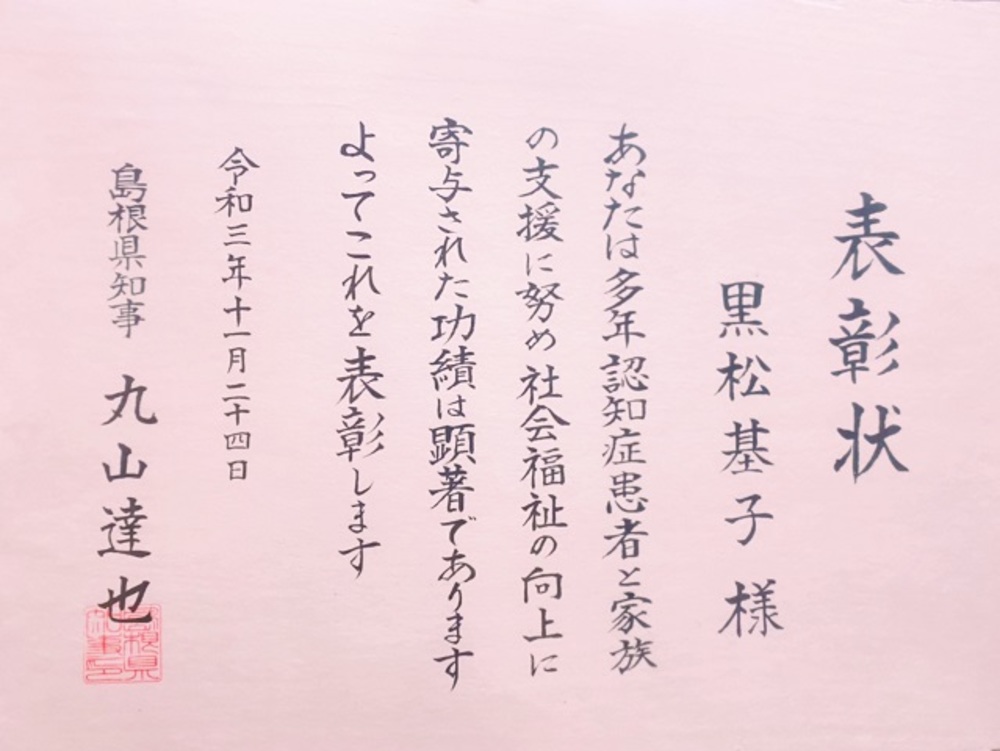 表彰状
黒松基子 様
あなたは多年認知症患者と家族
の支援に努め社会福祉の向上に
寄与された功績は顕著であります
よってこれを表彰します
令和三年十一月二十四日
島根県知事 丸山達也
島根県
知事印